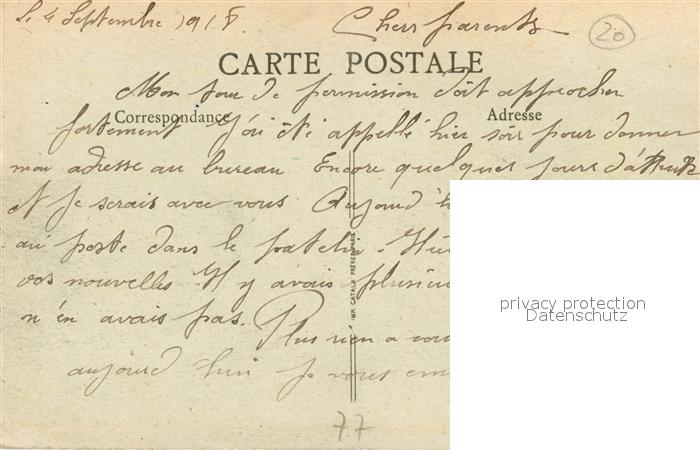 Le 4 Septembre 1918. Chers parents
20
CARTE POSTALE
Mon tour de permission doit approcher
Correspondance Adresse
fortement J'ai été appellé hier soir pour donner
mon adresse au bureau Encore quelques jours d'attente
et je serais avec vous Aujourd'h
au poste dans le
vos nouvelles. Il y avais plusieu
n'en avais pas. Plus rien a vou
aujourd'hui je vous em
IMP. CATALA FRERES PARIS
77
privacy protection
Datenschutz